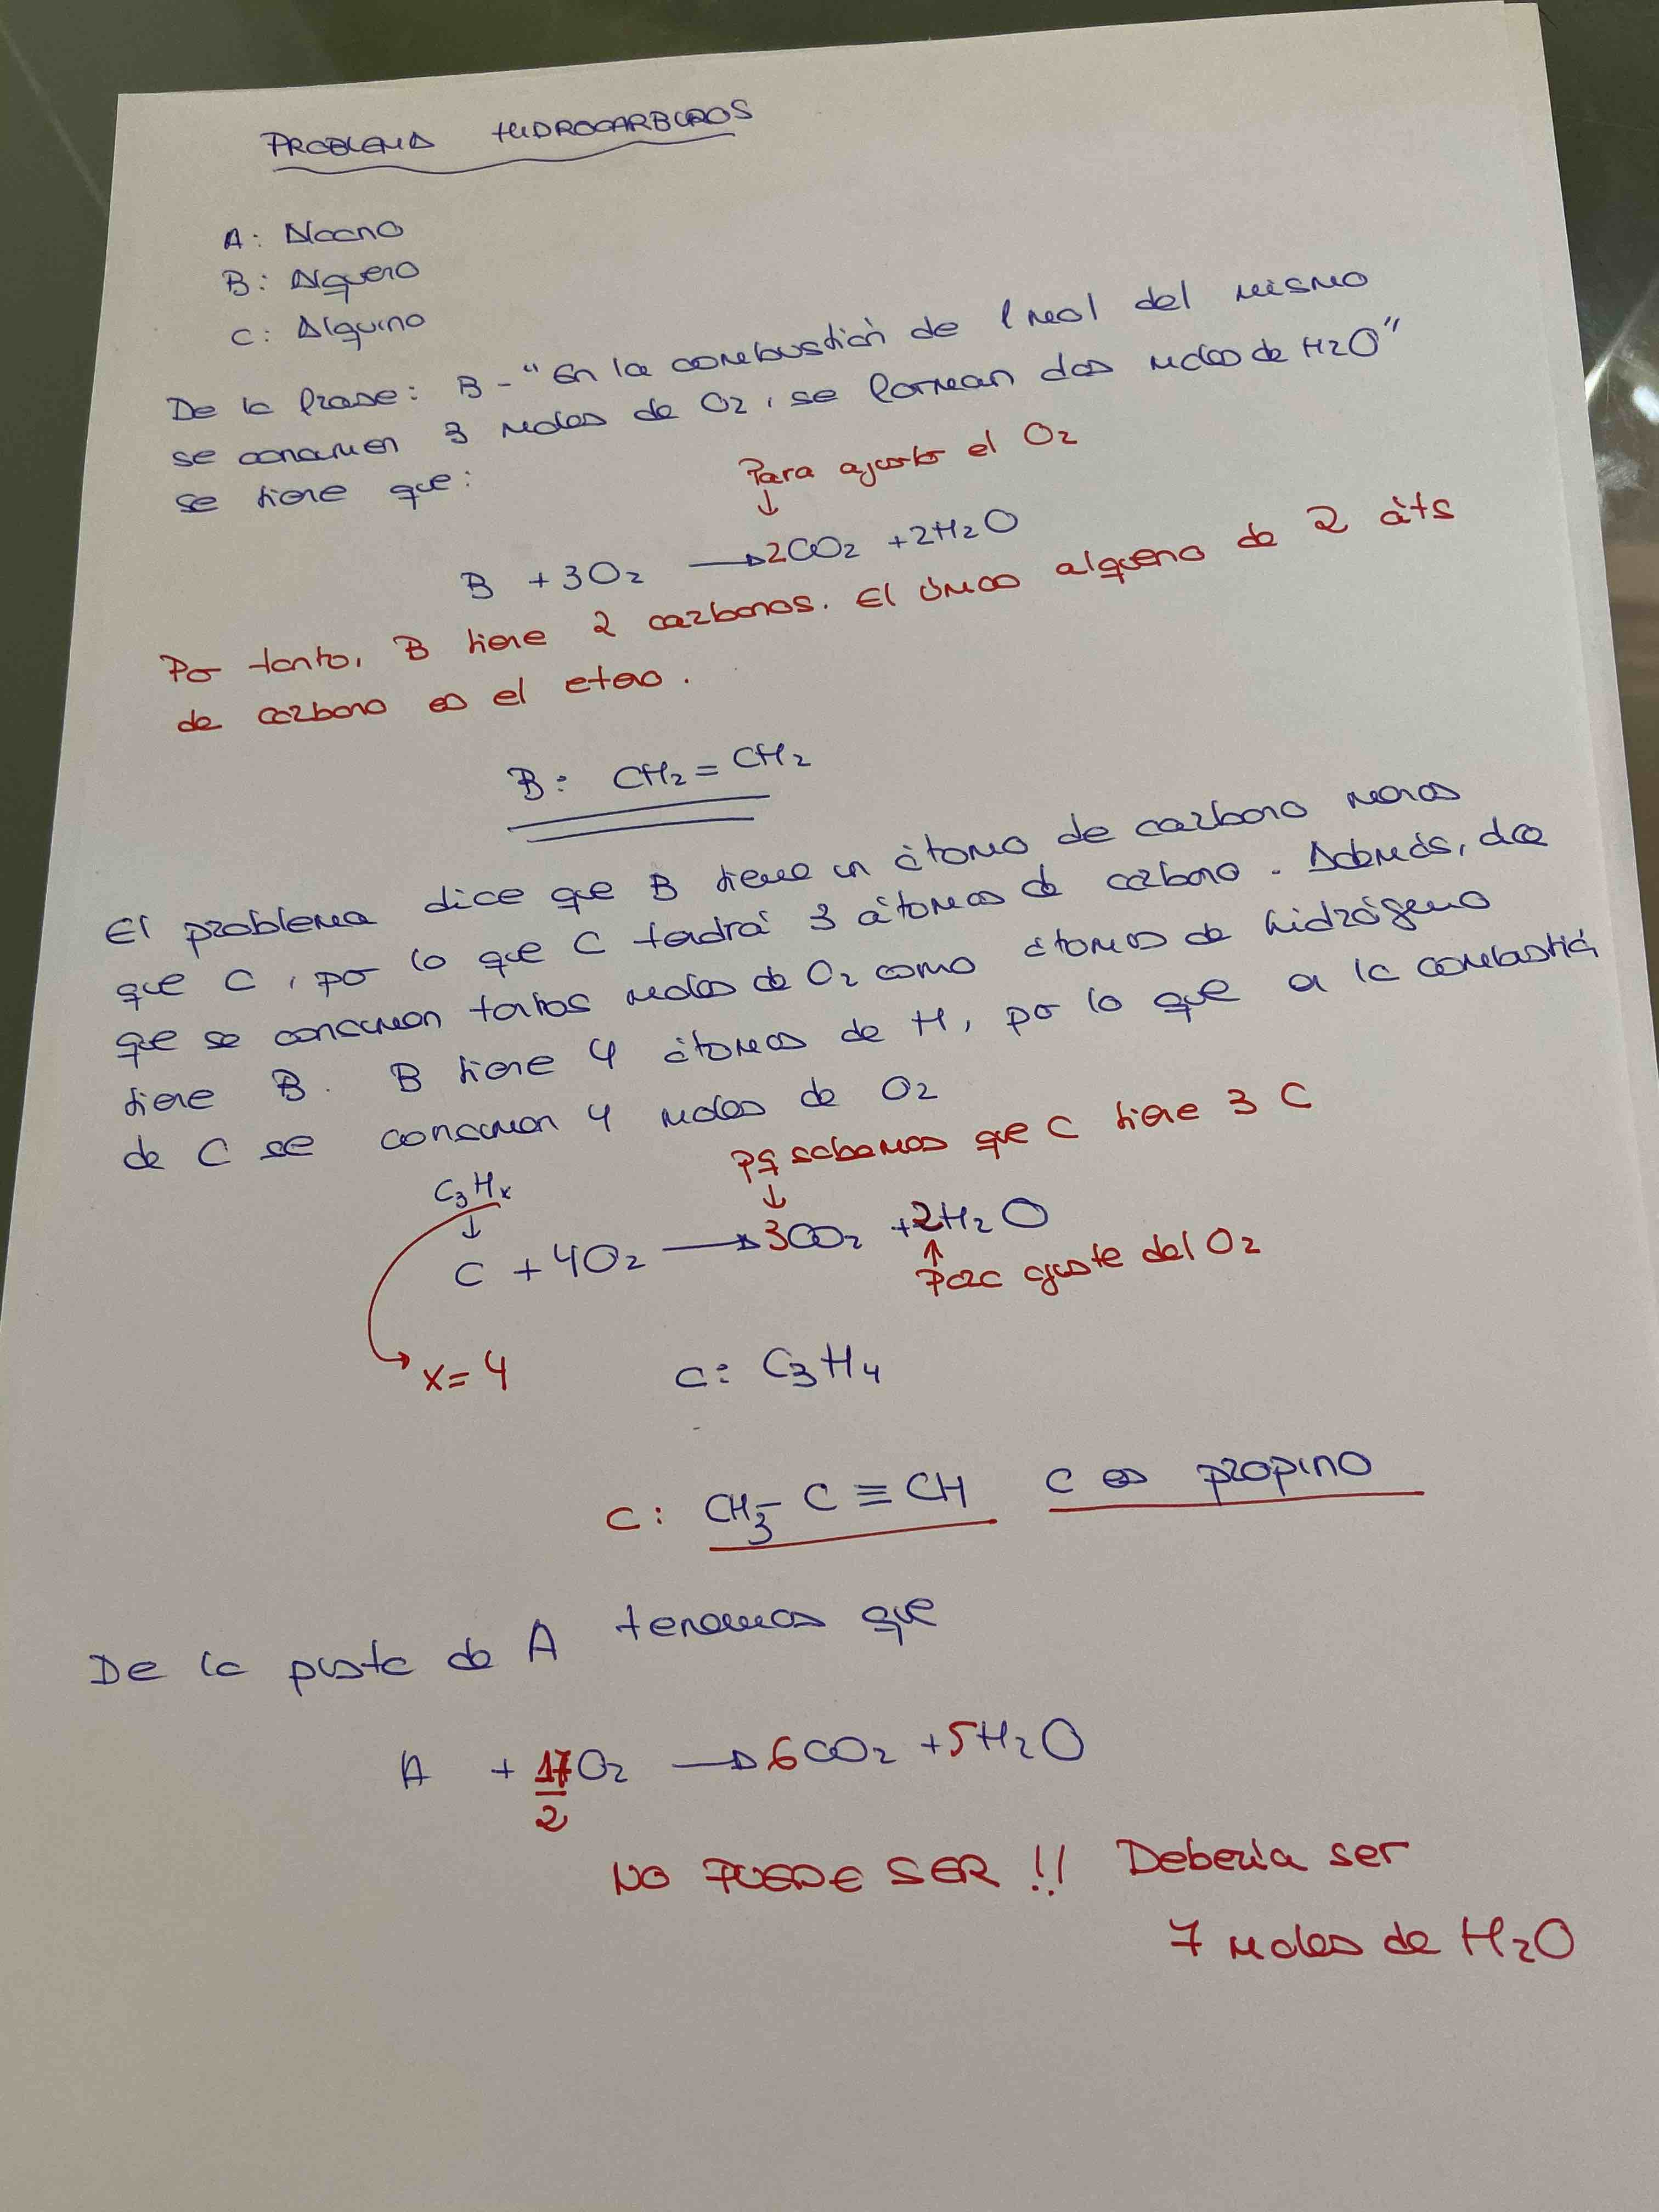 PROBLEMA HIDROCARBUROS
A: Alcano
B: Alqueno
C: Alquino
De la frase: B - "En la combustión de 1 mol del mismo
se consumen 3 moles de O2, se forman dos moles de H2O"
se tiene que:
Para ajustar el O2
↓
B + 3O2 → 2CO2 + 2H2O
Por tanto, B tiene 2 carbonos. El único alqueno de 2 áts
de carbono es el eteno.
B: CH2 = CH2
El problema dice que B tiene un átomo de carbono menos
que C, por lo que C tendrá 3 átomos de carbono. Además, dice
que se consumen tantos moles de O2 como átomos de hidrógeno
tiene B. B tiene 4 átomos de H, por lo que en la combustión
de C se consumen 4 moles de O2
Pq sabemos que C tiene 3 C
C3Hx
↓ ↓
C + 4O2 → 3CO2 + 2H2O
↑
Para ajuste del O2
x = 4 C: C3H4
C: CH3 - C ≡ CH C es propino
De la pista de A tenemos que
A + 17/2 O2 → 6CO2 + 5H2O
NO PUEDE SER !! Debería ser
7 moles de H2O